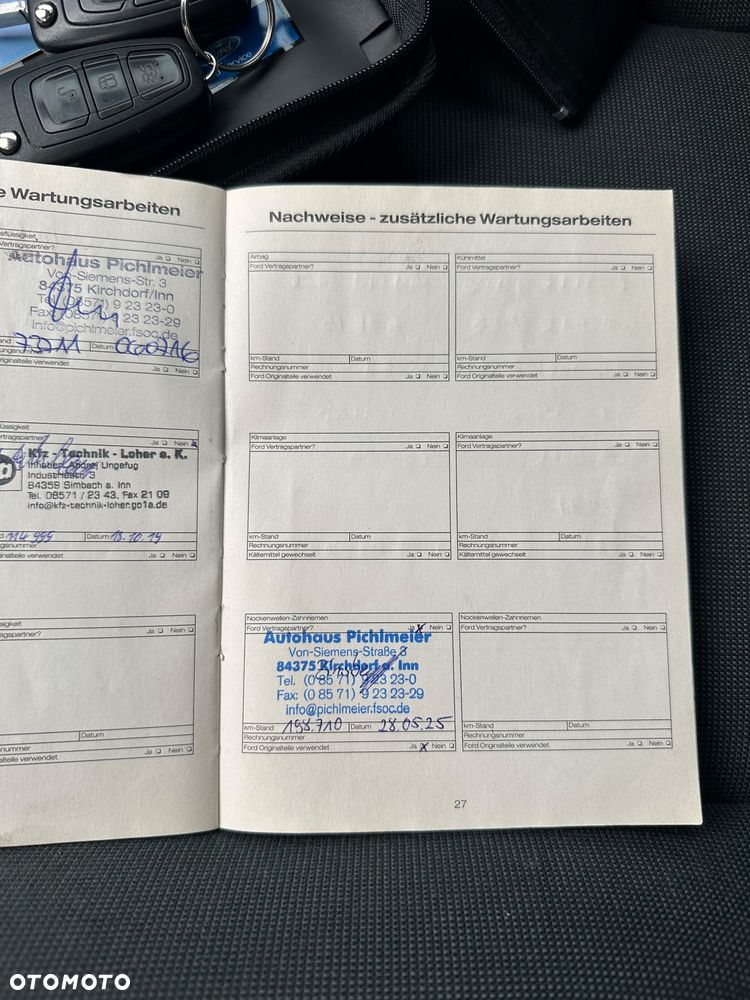 Ford
Service
e Wartungsarbeiten
sflüssigkeit
Vertragspartner?
Ja Nein
Autohaus Pichlmeier
Von-Siemens-Str. 3
84375 Kirchdorf/Inn
Tel. (08571) 9 23 23-0
Fax (08571) 9 23 23-29
info@pichlmeier.fsoc.de
Datum 060716
ungsnummer
iginalteile verwendet Ja Nein
lüssigkeit
ertragspartner? Ja Nein
Kfz - Technik - Loher e. K.
Inhaber: Andrej Ungefug
Industriestr. 3
84359 Simbach a. Inn
Tel. 08571 / 23 43, Fax 21 09
info@kfz-technik-loher.go1a.de
d 114 999 Datum 18.10.19
gsnummer
inalteile verwendet Ja Nein
sigkeit
agspartner? Ja Nein
Datum
nummer
alteile verwendet Ja Nein
Nachweise - zusätzliche Wartungsarbeiten
Airbag
Ford Vertragspartner? Ja Nein
km-Stand Datum
Rechnungsnummer
Ford Originalteile verwendet Ja Nein
Kühlmittel
Ford Vertragspartner? Ja Nein
km-Stand Datum
Rechnungsnummer
Ford Originalteile verwendet Ja Nein
Klimaanlage
Ford Vertragspartner? Ja Nein
km-Stand Datum
Rechnungsnummer
Kältemittel gewechselt Ja Nein
Klimaanlage
Ford Vertragspartner? Ja Nein
km-Stand Datum
Rechnungsnummer
Kältemittel gewechselt Ja Nein
Nockenwellen-Zahnriemen
Ford Vertragspartner? Ja Nein
Autohaus Pichlmeier
Von-Siemens-Straße 3
84375 Kirchdorf a. Inn
Tel. (0 85 71) 9 23 23-0
Fax: (0 85 71) 9 23 23-29
info@pichlmeier.fsoc.de
km-Stand 198.710 Datum 28.05.25
Rechnungsnummer
Ford Originalteile verwendet Ja Nein
Nockenwellen-Zahnriemen
Ford Vertragspartner? Ja Nein
km-Stand Datum
Rechnungsnummer
Ford Originalteile verwendet Ja Nein
27
OTOMOTO